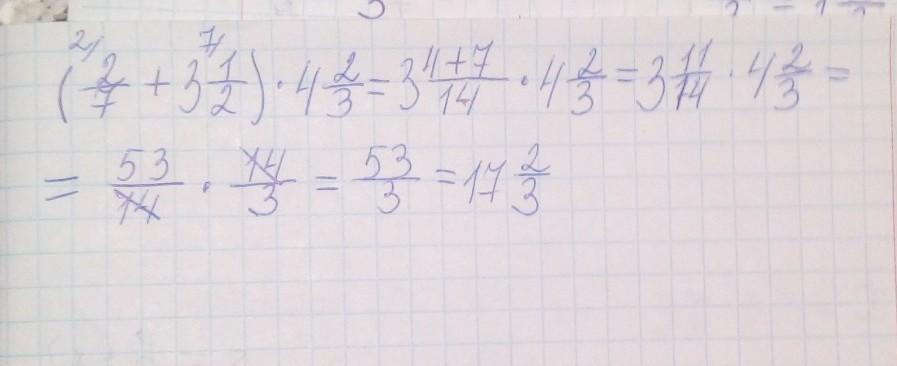 (2/7 + 3 1/2) · 4 2/3 = 3 4+7/14 · 4 2/3 = 3 11/14 · 4 2/3 =
= 53/14 · 14/3 = 53/3 = 17 2/3